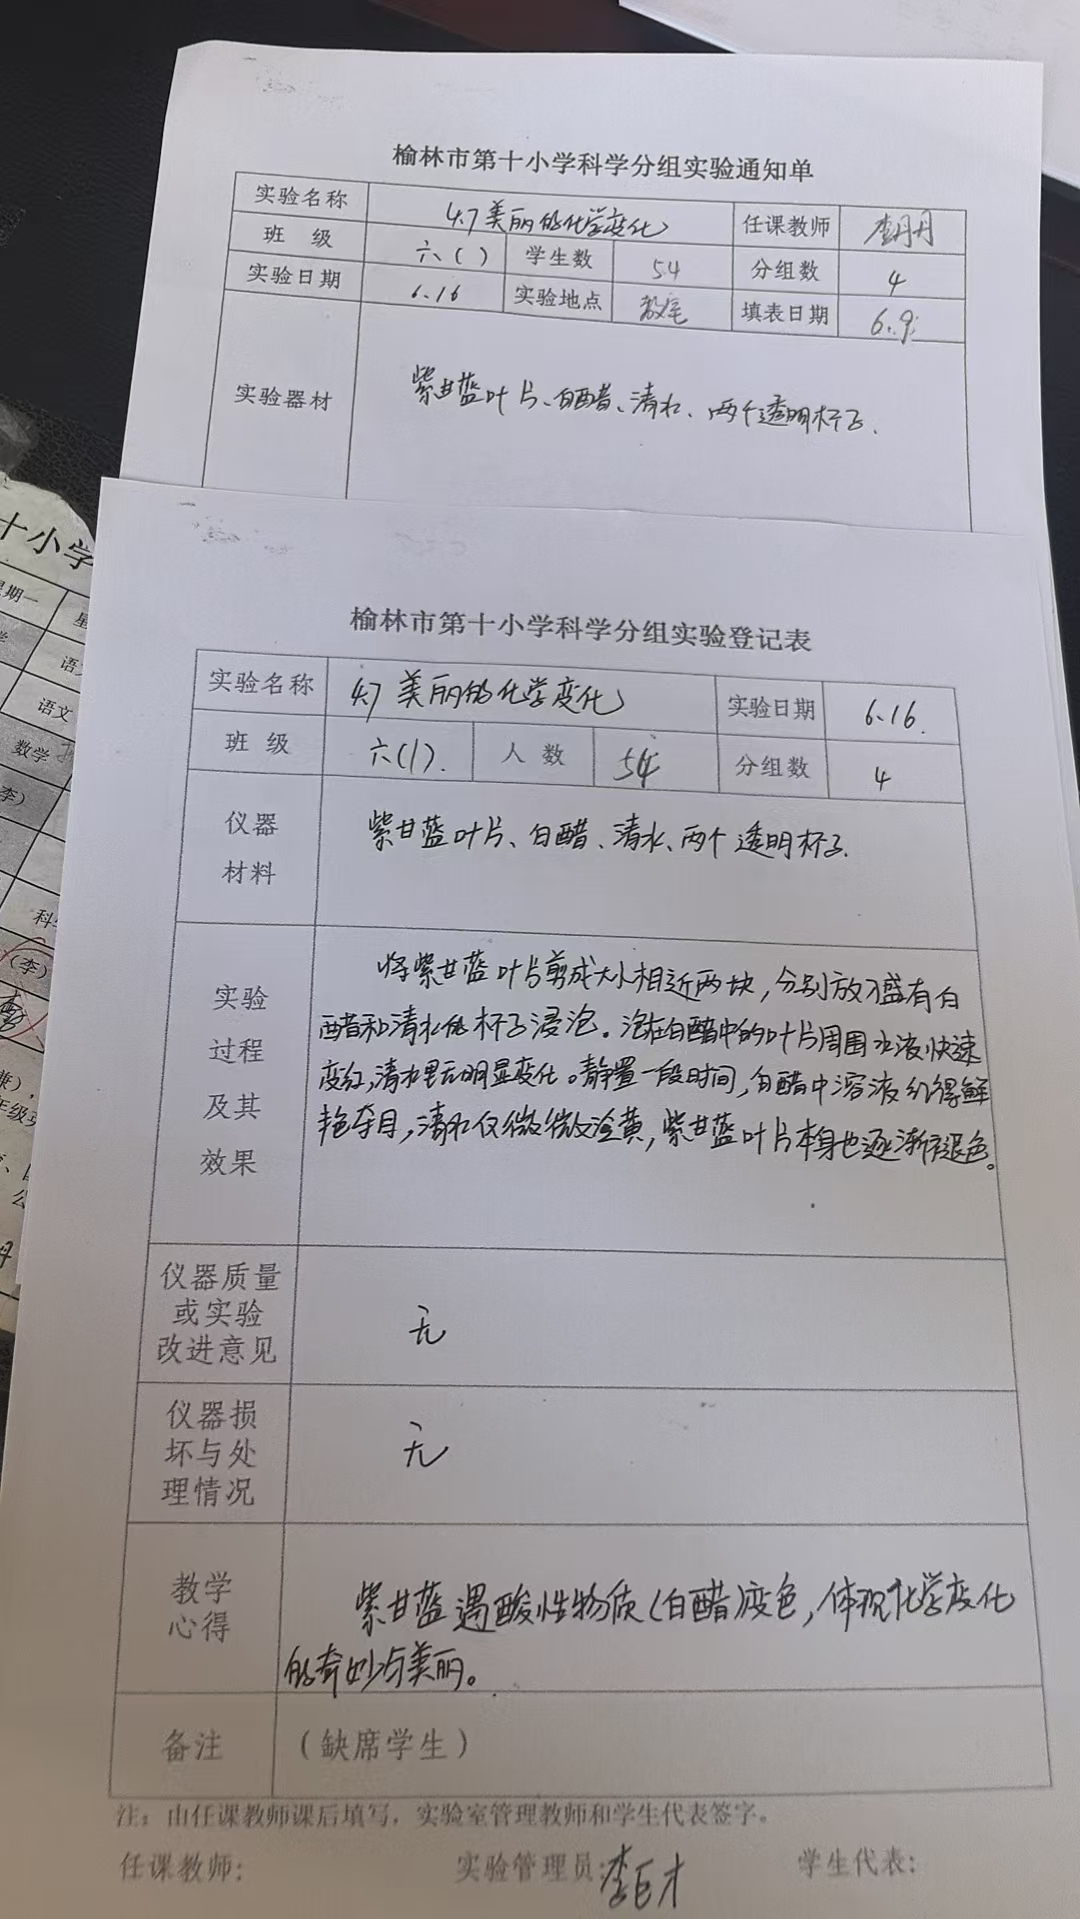 榆林市第十小学科学分组实验通知单
实验名称 4.7 美丽的化学变化 任课教师 李丹丹
班 级 六（ ） 学生数 54 分组数 4
实验日期 6.16 实验地点 教室 填表日期 6.9
实验器材 紫甘蓝叶片、白醋、清水、两个透明杯子.
十小学
星期一
语文
数学
(李)
科
(李)
榆林市第十小学科学分组实验登记表
实验名称 4.7 美丽的化学变化 实验日期 6.16.
班 级 六(1). 人 数 54 分组数 4
仪器
材料
紫甘蓝叶片、白醋、清水、两个透明杯子.
实验
过程
及其
效果
将紫甘蓝叶片剪成大小相近两块，分别放盛有白
醋和清水的杯子浸泡。泡在白醋中的叶片周围水液快速
变红，清水里无明显变化。静置一段时间，白醋中溶液红得鲜
艳夺目，清水仅微微泛黄，紫甘蓝叶片本身也逐渐褪色。
仪器质量
或实验
改进意见
无
仪器损
坏与处
理情况
无
教学
心得
紫甘蓝遇酸性物质(白醋)变色，体现化学变化
的奇妙与美丽。
备注 （缺席学生）
注：由任课教师课后填写，实验室管理教师和学生代表签字。
任课教师: 实验管理员: 学生代表: